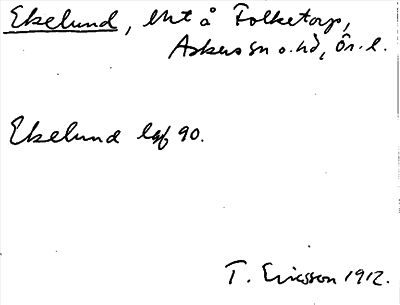 Ekelund, lht å Folketorp,
Askers sn o. hd, Ör. l.
Ekelund lgf 90.
T. Ericsson 1912.